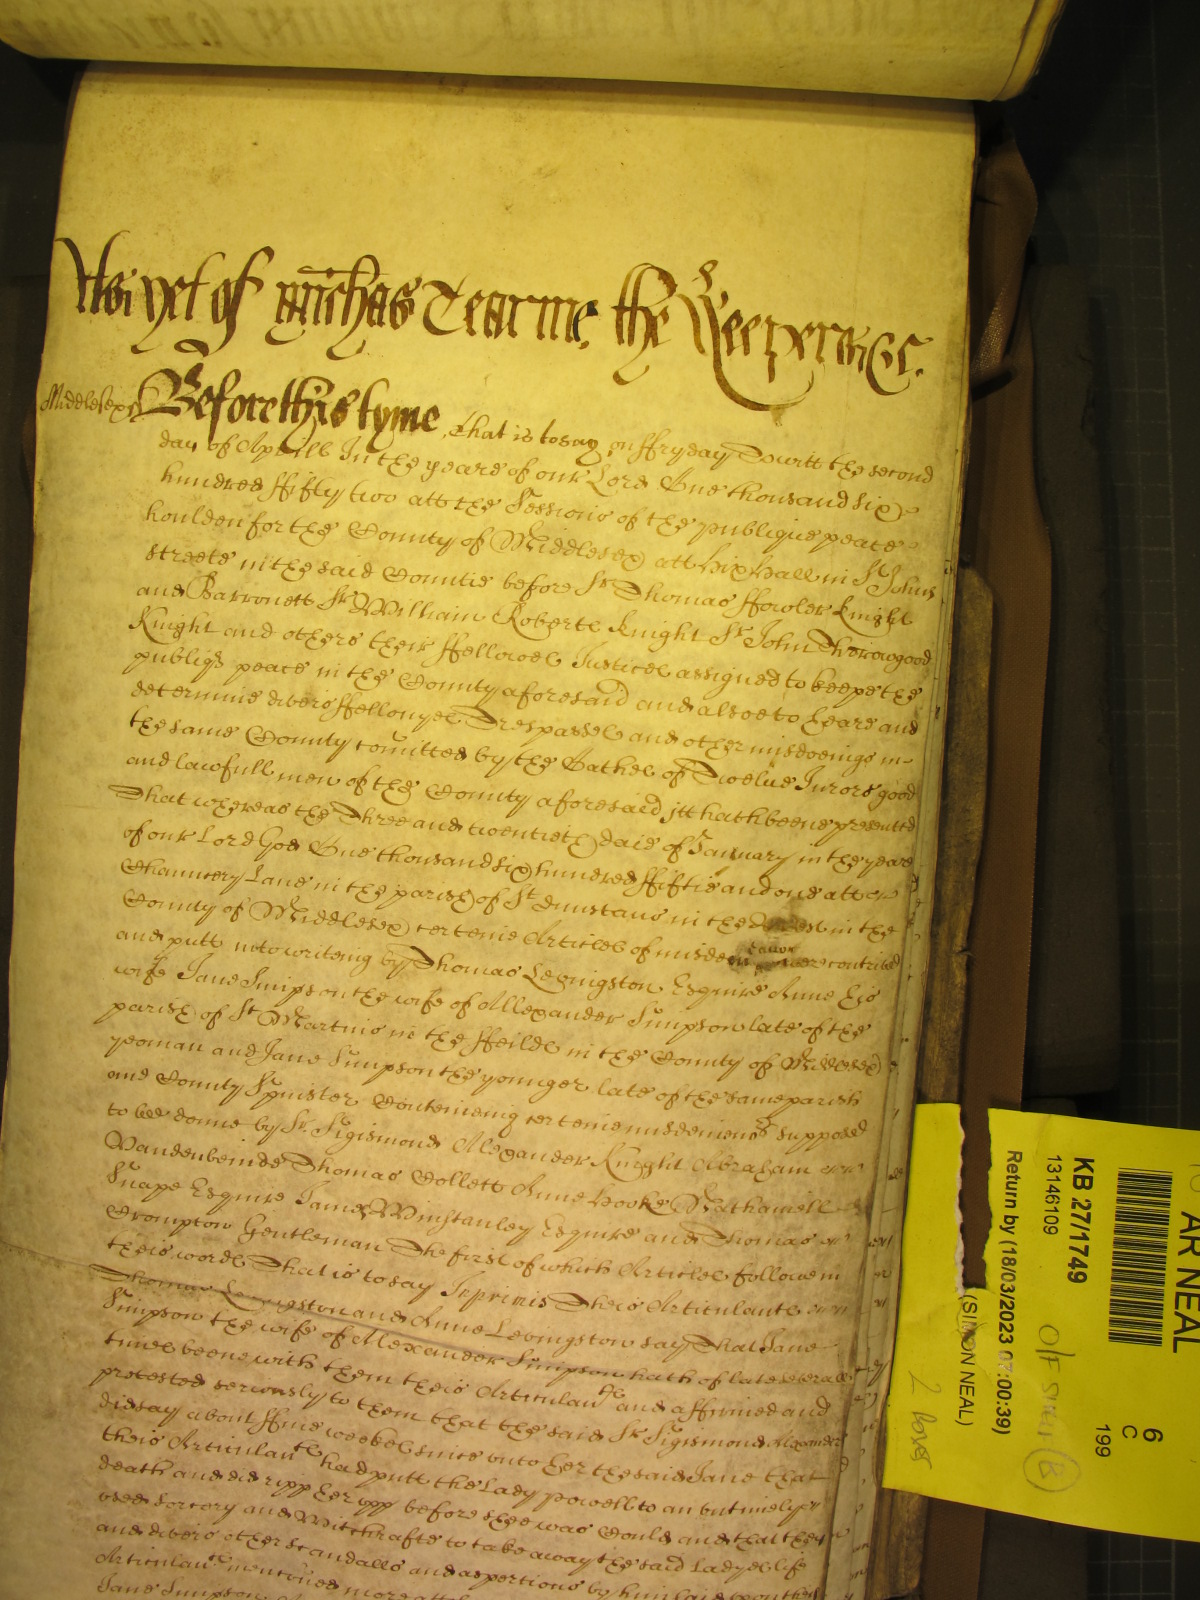 As yet of Michas Tearme. the Keepers &c.
Middlesex Before this tyme, that is to say on ffryday Scirtt the second
day of Aprill In the yeare of our Lord One thousand six
hundred ffifty two att the Sessions of the publique peace
houlden for the County of Middlesex att Hix Hall in St Johns
streete in the said Countie before Sr Thomas ffowler Knight
and Barronett Sr William Roberts Knight Sr John Thorowgood
Knight and others their ffellowes Justices assigned to keepe the
publiqs peace in the County aforesaid and alsoe to heare and
determine divers ffellonyes Trespasses and other misdoeings in
the same County comitted by the Oathes of Twelve Jurors good
and lawfull men of the County aforesaid itt hath beene presented
That whereas the Three and twentieth daie of January in the yeare
of our Lord God One thousand six hundred ffiftie and one att
Chauncery Lane in the parish of St Dunstans in the West in the
County of Middlesex certeine Articles of misdemeanor were contrived
and putt into writeing by Thomas Levingston Esquire Anne his
wife Jane Simpson the wife of Allexander Simpson late of the
parish of St Martins in the ffeilds in the County of Middlesex
yeoman and Jane Simpson the younger late of the same parish
and County Spinster Conteineing certeine misdemenors supposed
to bee donne by Sr Sigismond Alexander Knight Abraham
Vandenbeinde Thomas Collett Anne Hooke Nathaniell
Snape Esquire James Winstanley Esquire and Thomas
Crompton Gentleman The first of which Articles follow in
theis words That is to say Inprimis Theis Articulants
Thomas Levingston and Anne Levingston say That Jane
Simpson the wife of Alexander Simpson hath of late severall
times beene with them theis Articulants and affirmed and
protested seriously to them that the said Sr Sigismond Alexander
did say about ffive weekes since unto her the said Jane that
theis Articulants had putt the Lady Powell to an untimely
death and did ripp her upp before shee was Could and that they
used Sorcery and Witchcrafte to take away the said Ladyes life
and divers other scandalls and aspertions by him laid upon theis
Articulants mentioned more att
Jane Simpson
AR NEAL
6
C
199
KB 27/1749
13146109
Return by (18/03/2023 07:00:39)
(SIMON NEAL)
2 boxes